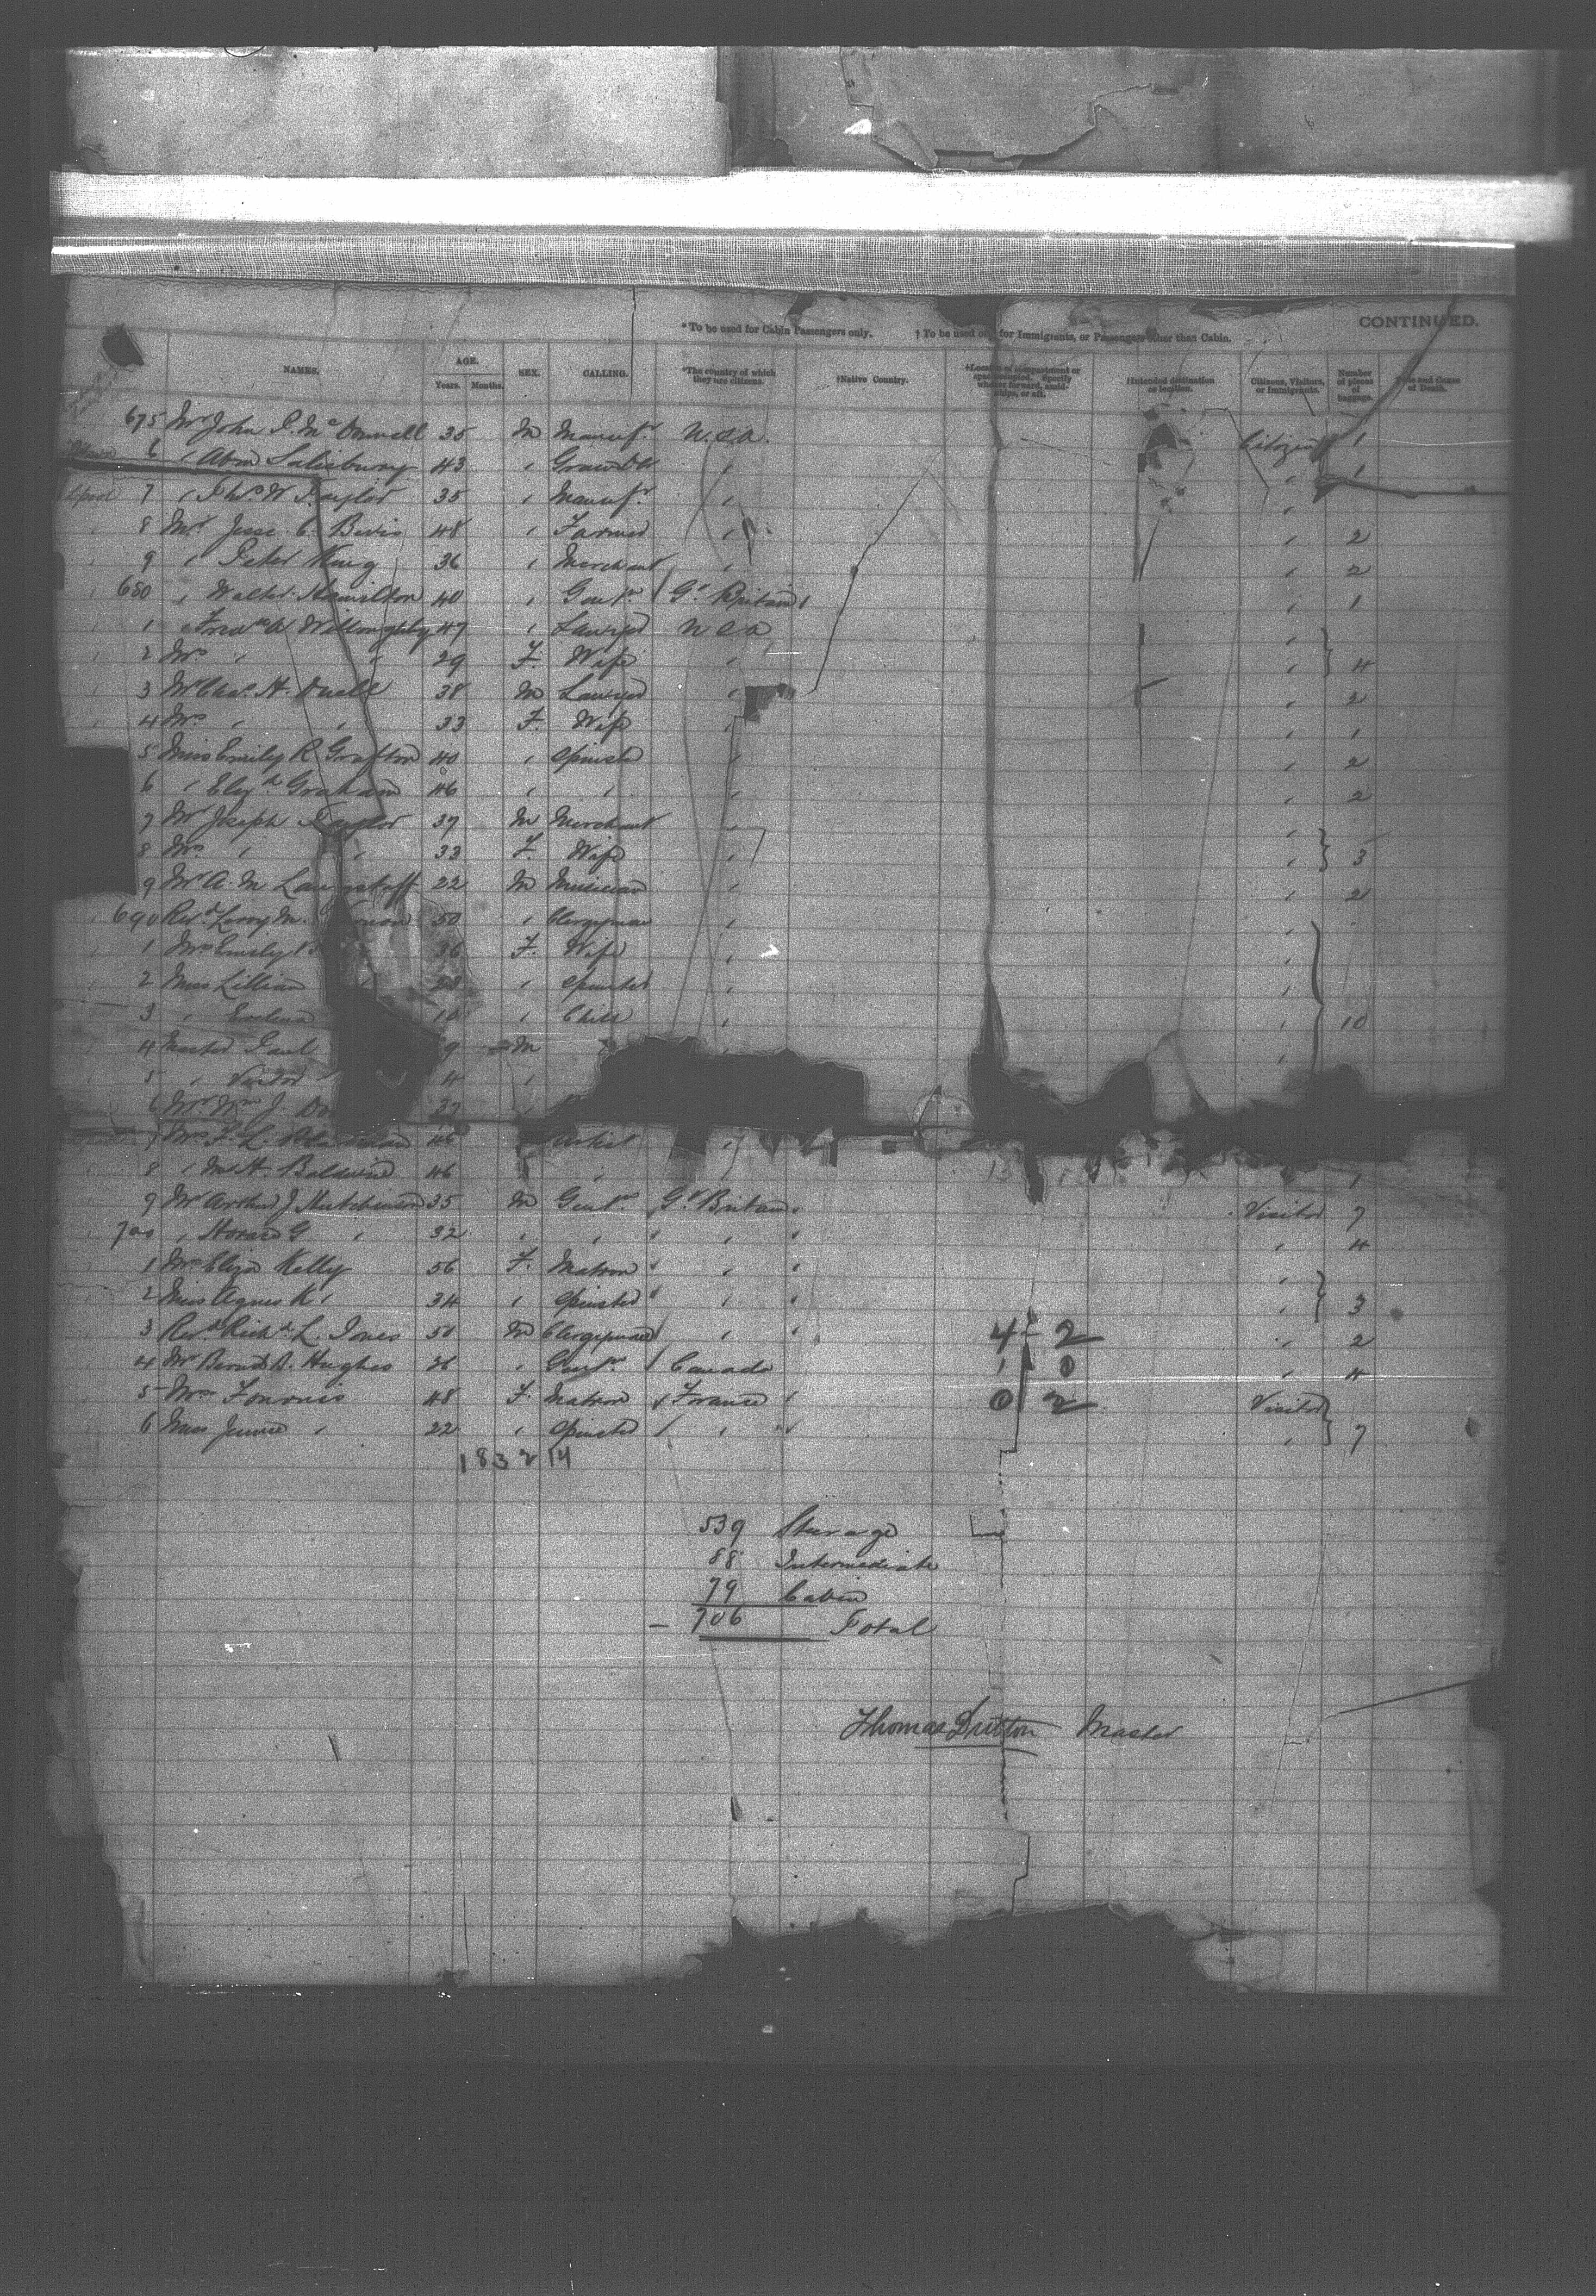 CONTINUED.
*To be used for Cabin Passengers only. † To be used only for Immigrants, or Passengers other than Cabin.
NAMES. AGE. Years. Months. SEX. CALLING. *The country of which they are citizens. †Native Country. †Intended destination or location. Citizens, Visitors, or Immigrants. Number of pieces of baggage. Date and Cause of Death.
675 Mr John 35 M Manufr. U.S.A. Citizen 1
6 " Abm Salisbury 43 " " " 1
Lpool 7 " Thos. W Taylor 35 " Manufr. " "
8 Mr Jesse C Bevis 48 " Farmer " " 2
9 " Peter King 36 " Merchant " " 2
680 " Walter Hamilton 40 " Gent. Gt. Britain " 1
1 " Fredk A Willoughby 47 " Lawyer U S A "
2 Mrs " " 29 F. Wife " " 4
3 Mr Chas. H. Duell 38 M Lawyer " " 2
4 Mrs " " 33 F. Wife " " 1
5 Miss Emily R Grafton 40 " Spinster " " 2
6 " Elizh Graham 46 " " " " 2
7 Mr Joseph Taylor 37 M Merchant " "
8 Mrs " " 33 F. Wife " " 3
9 Mr A. M Langstaff 22 M Musician " " 2
690 Revd Leroy M. 50 " Clergyman " "
1 Mrs Emily 36 F. Wife " "
2 Miss Lillian " " Spinster " "
3 " Evelina 10 " Child " " 10
4 Master Paul 9 M "
5 " Victor 4 "
6 Mr Wm J. 37
7 Mrs F. L. 46 Artist "
8 " M. H. Baldwin 46 " 1
9 Mr Arthur J Hutchinson 35 M Gent. Gt Britain Visitor 7
700 " Horace G " 32 " " " " 4
1 Mrs Eliza Kelly 56 F. Matron " "
2 Miss Agnes K " 34 " Spinster " " 3
3 Revd Richd. L. Jones 50 M Clergyman " 4 - 2 " 2
4 Mr Bernd B. Hughes 26 " Gent. Canada 1 0 " 4
5 Mrs 48 F. Matron France 0 2 Visitor
6 Miss Jennie " 22 " Spinster " " 7
183 2 14
539 Steerage
88 Intermediate
79 Cabin
706 Total
Thomas Dutton Master